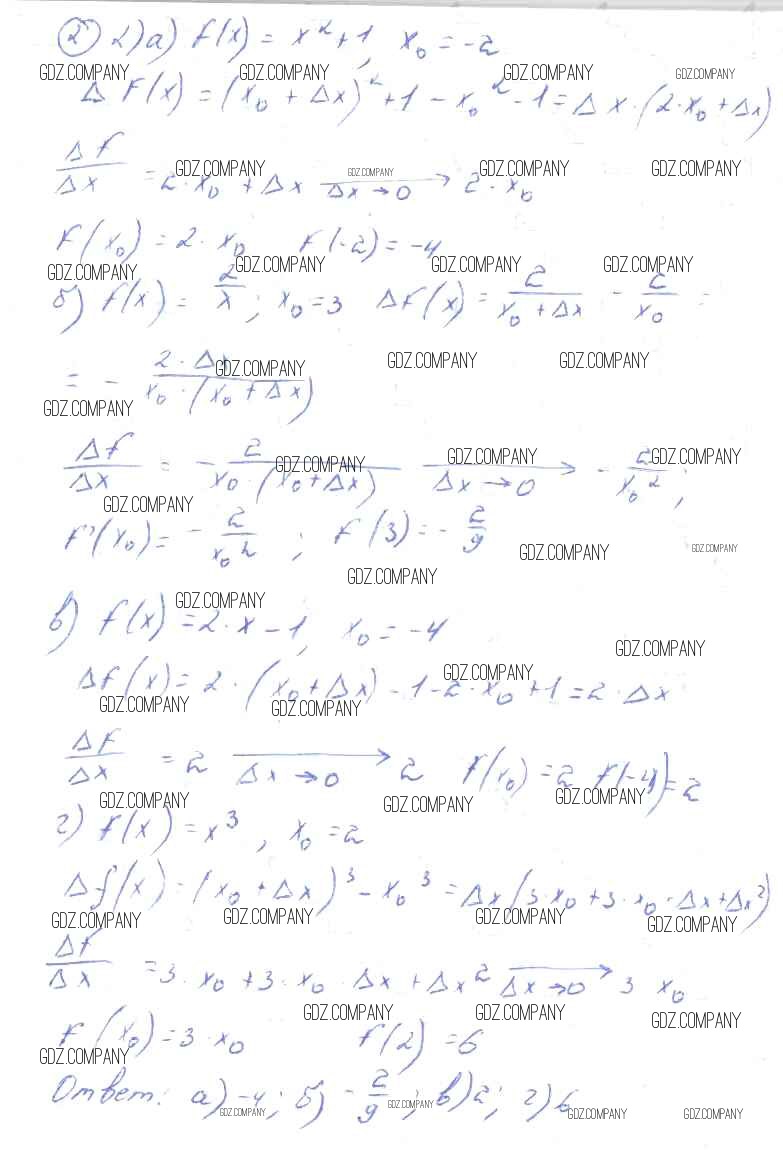 ② 2) а) f(x) = x²+1, x₀ = -2
GDZ.COMPANY GDZ.COMPANY GDZ.COMPANY GDZ.COMPANY
Δ f(x) = (x₀ + Δx)² + 1 - x₀² - 1 = Δx·(2·x₀ + Δx)
Δf/Δx = 2·x₀ + Δx →(Δx→0) 2·x₀
GDZ.COMPANY GDZ.COMPANY GDZ.COMPANY GDZ.COMPANY
f(x₀) = 2·x₀ f(-2) = -4
GDZ.COMPANY GDZ.COMPANY GDZ.COMPANY GDZ.COMPANY
б) f(x) = 2/x; x₀ = 3 Δf(x) = 2/(x₀ + Δx) - 2/x₀ =
GDZ.COMPANY GDZ.COMPANY GDZ.COMPANY
= - 2·Δx/(x₀·(x₀ + Δx))
GDZ.COMPANY
Δf/Δx = - 2/(x₀·(x₀ + Δx)) →(Δx→0) - 2/x₀²;
GDZ.COMPANY GDZ.COMPANY GDZ.COMPANY
GDZ.COMPANY
f'(x₀) = - 2/x₀²; f(3) = - 2/9
GDZ.COMPANY GDZ.COMPANY
GDZ.COMPANY
GDZ.COMPANY
в) f(x) = 2·x - 1, x₀ = -4
GDZ.COMPANY
Δf(x) = 2·(x₀ + Δx) - 1 - 2·x₀ + 1 = 2·Δx
GDZ.COMPANY
GDZ.COMPANY GDZ.COMPANY
Δf/Δx = 2 →(Δx→0) 2 f(x₀) = 2 f(-4) = 2
GDZ.COMPANY GDZ.COMPANY GDZ.COMPANY
г) f(x) = x³, x₀ = 2
Δf(x) = (x₀ + Δx)³ - x₀³ = Δx(3·x₀ + 3·x₀·Δx + Δx²)
GDZ.COMPANY GDZ.COMPANY GDZ.COMPANY GDZ.COMPANY
Δf/Δx = 3·x₀ + 3·x₀·Δx + Δx² →(Δx→0) 3 x₀
GDZ.COMPANY GDZ.COMPANY GDZ.COMPANY
f(x₀) = 3·x₀ f(2) = 6
GDZ.COMPANY
Ответ: а) -4; б) - 2/9; в) 2; г) 6
GDZ.COMPANY GDZ.COMPANY GDZ.COMPANY GDZ.COMPANY